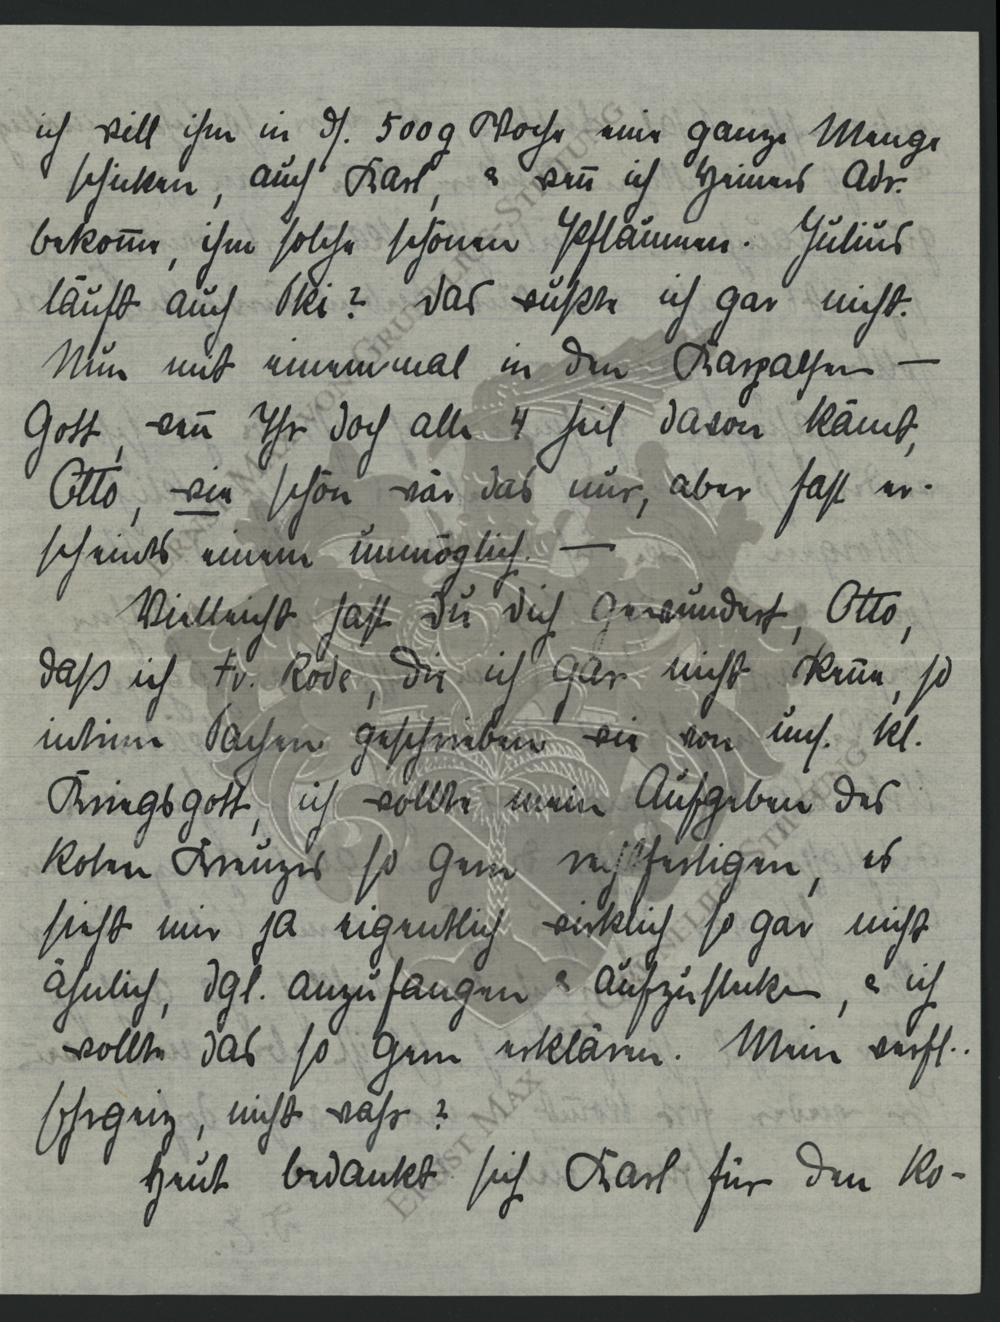 ich will ihm in ds. 500g Woche eine ganze Menge
schicken, auch Karl, & weñ ich Heiners Adr.
bekom̄e, ihm solche schönen Pflaumen. Julius
läuft auch Ski? das wußte ich gar nicht.
Nun mit einemmal in den Karpathen —
Gott, weñ Ihr doch alle 4 heil davon kämt,
Otto, wie schön wär das nur, aber fast er-
scheints einem unmöglich. —
Vielleicht hast Du Dich gewundert, Otto,
daß ich Fr. Rode, die ich gar nicht keñe, so
intime Sachen geschrieben wie von uns. kl.
Kriegsgott, ich wollte mein Aufgeben des
Roten Kreuzes so gern rechtfertigen, es
sieht mir ja eigentlich wirklich so gar nicht
ähnlich, dgl. anzufangen & aufzustecken, & ich
wollte das so gern erklären. Mein verfl..
Ehrgeiz, nicht wahr?
Heut bedankt sich Karl für den Ro-
ERNST MAX VON GRUNELIUS-STIFTUNG
ERNST MAX VON GRUNELIUS-STIFTUNG